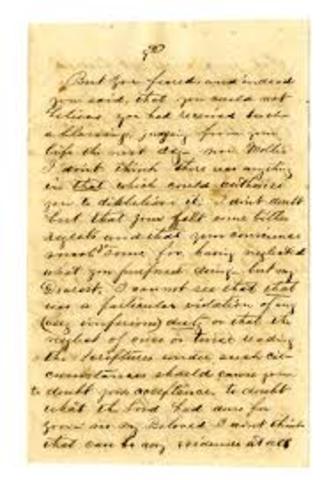 But you feared, and indeed
you said, that you could not
believe you had received such
a blessing, judging from your
life the next day. now Mollie
I don't think there was anything
in that which could authorize
you to disbelieve it. I don't doubt
but that you felt some bitter
regrets and that your conscience
smote some for having neglected
what you purposed doing, but my
Dearest, I cannot see that that
was a particular violation of any
duty or that the
neglect of once or twice reading
the Scriptures under such cir-
cumstances should cause you
to doubt your acceptance, to doubt
what the Lord had done for
you. my Beloved I don't think
that can be any evidence at all